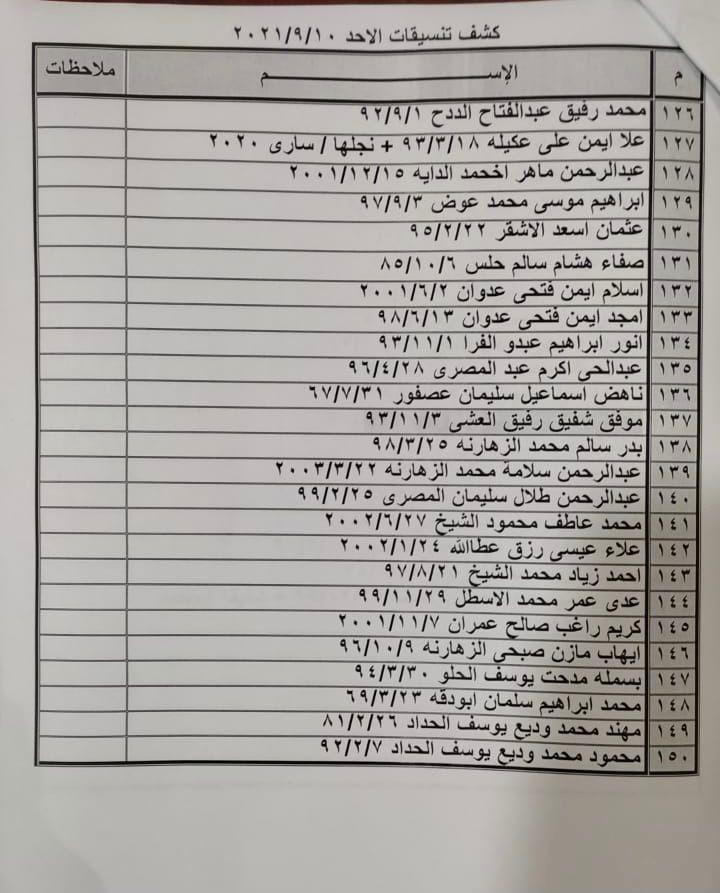 كشف تنسيقات الاحد ٢٠٢١/٩/١٠
م الإســـــــــم ملاحظات
١٢٦ محمد رفيق عبدالفتاح الددح ٩٢/٩/١
١٢٧ علا ايمن على عكيله ٩٣/٣/١٨ + نجلها / سارى ٢٠٢٠
١٢٨ عبدالرحمن ماهر اخحمد الدايه ٢٠٠١/١٢/١٥
١٢٩ ابراهيم موسى محمد عوض ٩٧/٩/٣
١٣٠ عثمان اسعد الاشقر ٩٥/٢/٢٢
١٣١ صفاء هشام سالم حلس ٨٥/١٠/٦
١٣٢ اسلام ايمن فتحى عدوان ٢٠٠١/٦/٢
١٣٣ امجد ايمن فتحى عدوان ٩٨/٦/١٣
١٣٤ انور ابراهيم عبدو الفرا ٩٣/١١/١
١٣٥ عبدالحى اكرم عبد المصرى ٩٦/٤/٢٨
١٣٦ ناهض اسماعيل سليمان عصفور ٦٧/٧/٣١
١٣٧ موفق شفيق رفيق العشى ٩٣/١١/٣
١٣٨ بدر سالم محمد الزهارنه ٩٨/٣/٢٥
١٣٩ عبدالرحمن سلامة محمد الزهارنه ٢٠٠٣/٣/٢٢
١٤٠ عبدالرحمن طلال سليمان المصرى ٩٩/٢/٢٥
١٤١ محمد عاطف محمود الشيخ ٢٠٠٢/٦/٢٧
١٤٢ علاء عيسى رزق عطاالله ٢٠٠٢/١/٢٤
١٤٣ احمد زياد محمد الشيخ ٩٧/٨/٢١
١٤٤ عدى عمر محمد الاسطل ٩٩/١١/٢٩
١٤٥ كريم راغب صالح عمران ٢٠٠١/١١/٧
١٤٦ ايهاب مازن صبحى الزهارنه ٩٦/١٠/٩
١٤٧ بسمله مدحت يوسف الحلو ٩٤/٣/٣٠
١٤٨ محمد ابراهيم سلمان ابودقه ٦٩/٣/٢٣
١٤٩ مهند محمد وديع يوسف الحداد ٨١/٢/٢٦
١٥٠ محمود محمد وديع يوسف الحداد ٩٢/٢/٧